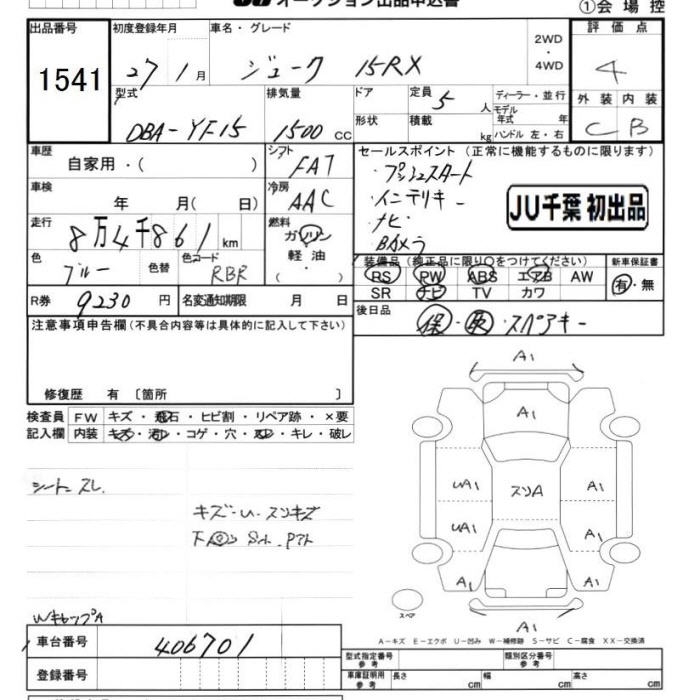 オークション出品申込書
①会場控
出品番号 初度登録年月 車名・グレード 評価点
1541 27 1月 ジューク 15RX 2WD・4WD 4
型式 排気量 ドア 定員 5人 ディーラー・並行 外装 内装
モデル年式 年
DBA-YF15 1500cc 形状 積載 kg ハンドル 左・右 C B
車歴 シフト セールスポイント(正常に機能するものに限ります)
自家用・( ) FAT ・プッシュスタート
車検 冷房 ・インテリキー
年 月( 日) AAC ・ナビ
走行 燃料 ・BAメラ
8万4千861km ガソリン・軽油・( )
JU千葉 初出品
色 色替 色コード 装備品(純正品に限り○をつけてください) 新車保証書
ブルー RBR RS PW ABS エアB AW 有・無
SR ナビ TV カワ
R券 9230円 名変通知期限 月 日 後日品 保・取・スペアキー
注意事項申告欄(不具合内容等は具体的に記入して下さい)
修復歴 有 〔箇所 〕
検査員 FW キズ・飛石・ヒビ割・リペア跡・×要
記入欄 内装 キズ・汚レ・コゲ・穴・スレ・キレ・破レ
シートスレ
キズ・U・スリキズ
WキャップA
A1
A1
UA1 スリA A1
UA1 A1
A1 A1
スペア
A1
A-キズ E-エクボ U-凹み W-補修跡 S-サビ C-腐食 XX-交換済
車台番号 406701
型式指定番号 参考 類別区分番号 参考
登録番号 車庫証明用 参考 長さ cm 幅 cm 高さ cm